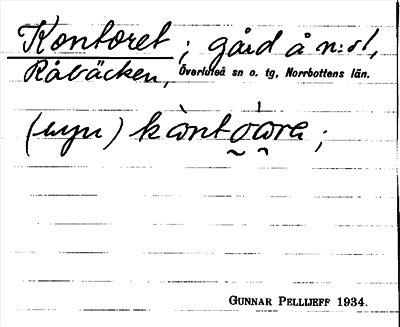 Kontoret ; gård å n:s 1,
Råbäcken, Överluleå sn o. tg, Norrbottens län.
(uyn) kὼntòώra ;
GUNNAR PELLIJEFF 1934.